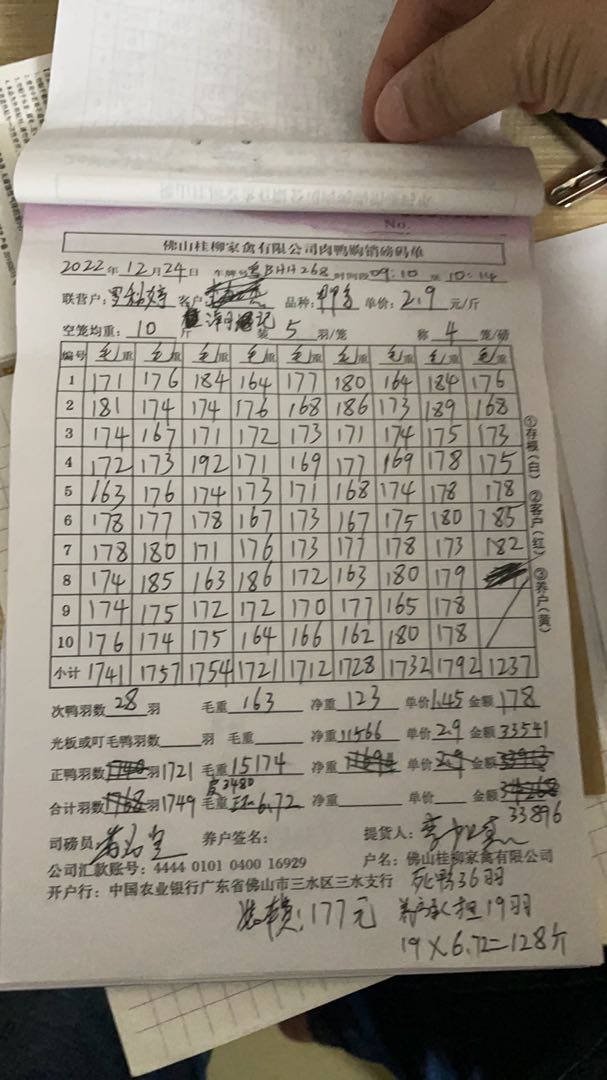 No.
佛山桂柳家禽有限公司肉鸭购销磅码单
2022年12月24日 车牌号粤BHH268 时间段09:10 至 10:14
联营户: 客户 品种: 单价:2.9元/斤
空笼均重:10斤 装5羽/笼 称4笼/磅
编号 毛重 毛重 毛重 毛重 毛重 毛重 毛重 毛重 毛重
1 171 176 184 164 177 180 164 184 176
2 181 174 174 176 168 186 173 189 168
3 174 167 171 172 173 171 174 175 173
4 172 173 192 171 169 177 169 178 175
5 163 176 174 173 171 168 174 178 178
6 178 177 178 167 173 167 175 180 185
7 178 180 171 176 173 177 178 173 182
8 174 185 163 186 172 163 180 179
9 174 175 172 172 170 177 165 178
10 176 174 175 164 166 162 180 178
小计 1741 1757 1754 1721 1712 1728 1732 1792 1237
①存根(白) ②客户(红) ③养户(黄)
次鸭羽数28羽 毛重163 净重123 单价1.45 金额178
光板或叮毛鸭羽数 羽 毛重 净重11566 单价2.9 金额33541
正鸭羽数 羽1721 毛重15174 净重 单价2.9 金额
皮3480
合计羽数1768羽1749 毛重 6.72 净重 单价 金额
33896
司磅员: 养户签名: 提货人:
公司汇款账号: 4444 0101 0400 16929 户名: 佛山桂柳家禽有限公司
开户行: 中国农业银行广东省佛山市三水区三水支行 死鸭36羽
:177元 养户承担19羽
19×6.72=128斤